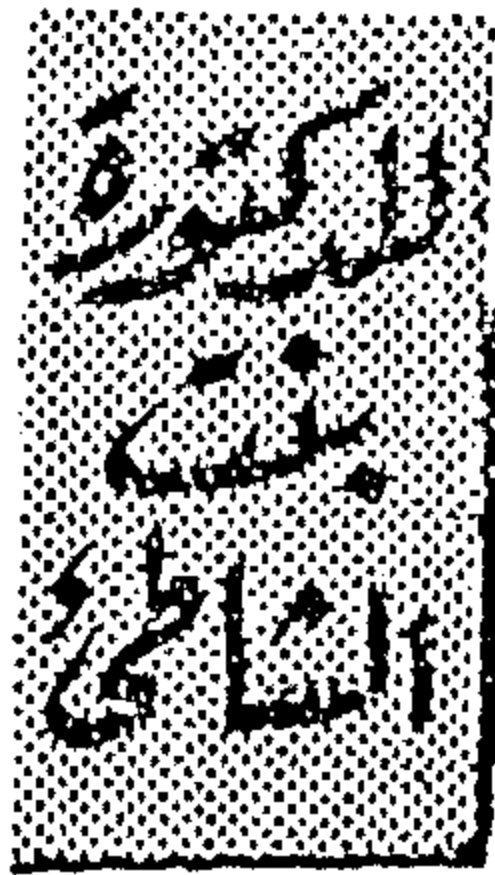 الدكتورة
بنت
الشاطئ